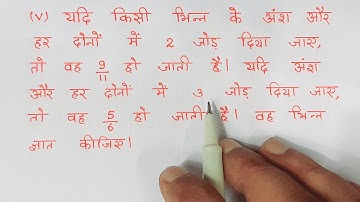 (v) यदि किसी भिन्न के अंश और
हर दोनों में 2 जोड़ दिया जाए,
तो वह 9/11 हो जाती है। यदि अंश
और हर दोनों में 3 जोड़ दिया जाए,
तो वह 5/6 हो जाती है। वह भिन्न
ज्ञात कीजिए।